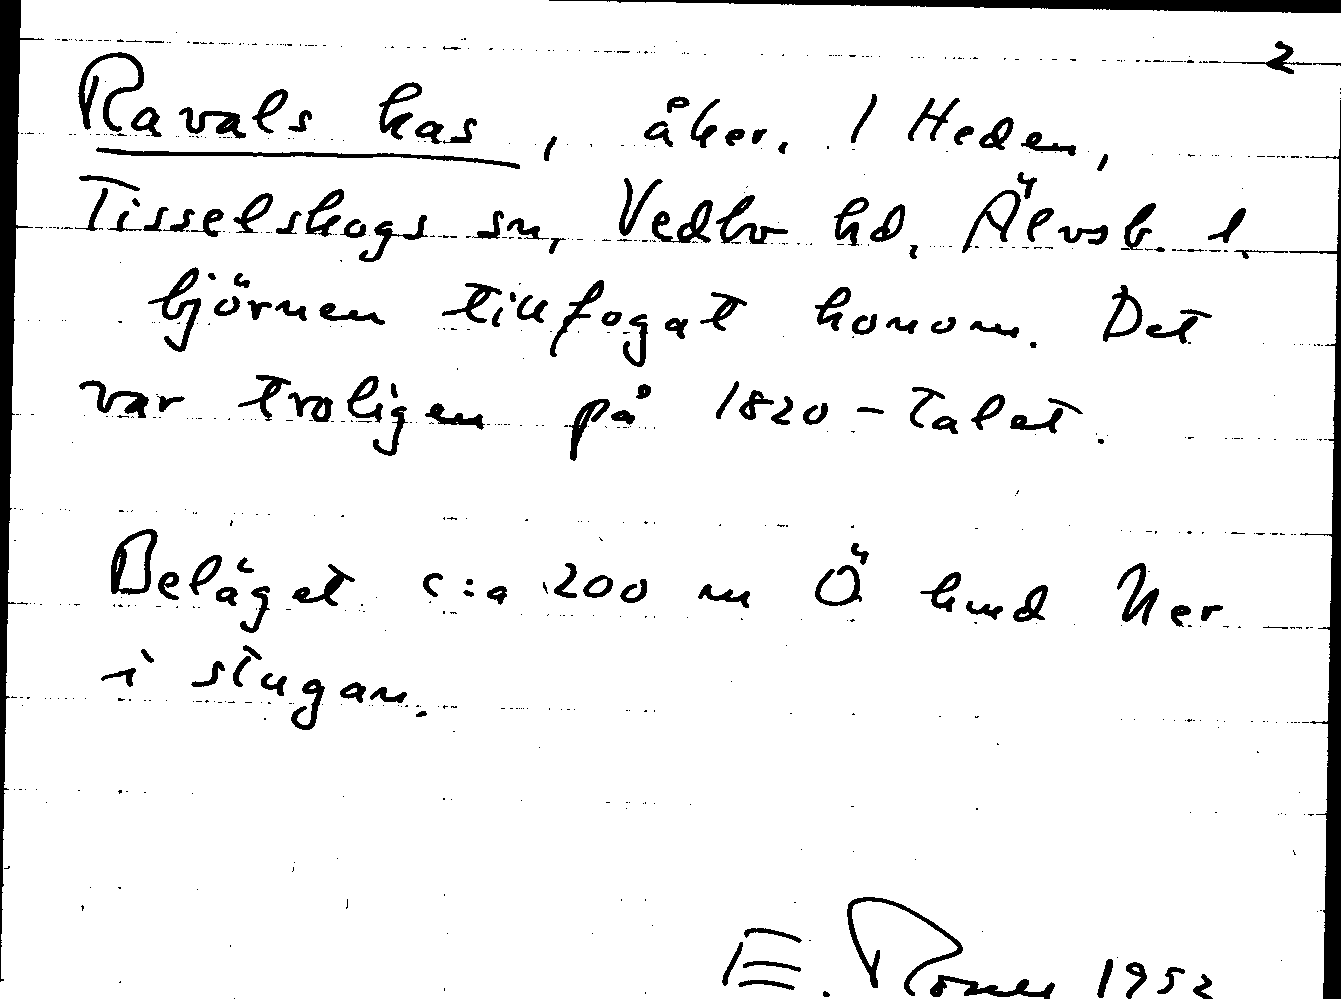 2
Ravals kas, åker. 1 Heden,
Tisselskogs sn, Vedbo hd, Älvsb. l.
björnen tillfogat honom. Det
var troligen på 1820-talet.
Beläget c:a 200 m Ö hmd Ner
i stugan.
E. 1952